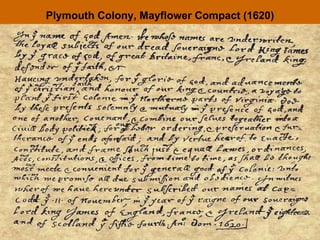 Plymouth Colony, Mayflower Compact (1620)
In yᵉ name of God Amen. We whose names are underwriten,
the loyall subjects of our dread soveraigne Lord King James
by yᵉ grace of God, of great Britaine, franc, & Ireland king,
defender of yᵉ faith, &c
Haveing undertaken, for yᵉ glorie of God, and advancemente
of yᵉ christian faith and honour of our king & countrie, a voyage to
plant yᵉ first colonie in yᵉ Northerne parts of Virginia. Doe
by these presents solemnly & mutualy in yᵉ presence of God, and
one of another, covenant, & combine our selves togeather into a
Civill body politick; for our better ordering, & preservation & fur=
therance of yᵉ ends aforesaid; and by vertue hearof to enacte,
constitute, and frame such just & equall Lawes, ordinances,
Acts, constitutions, & offices, from time to time, as shall be thought
most meete & convenient for yᵉ generall good of yᵉ colonie: unto
which we promise all due submission and obedience. In witnes
wherof we have hereunder subscribed our names at Cap=
Codd yᵉ .11. of November, in yᵉ year of yᵉ raigne of our soveraigne
Lord king James of England, france, & Ireland yᵉ eighteenth
and of Scotland yᵉ fiftie fourth. Ano: Dom. 1620.